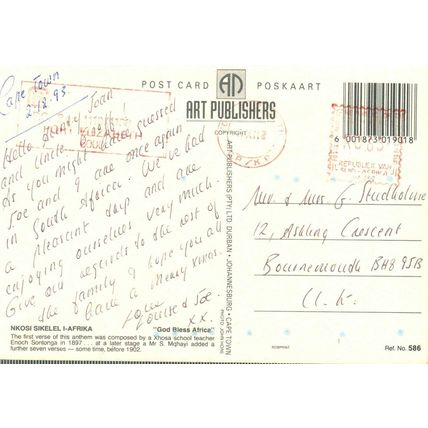 Cape Town
2.12.93.
POST CARD
POSKAART
AP
ART PUBLISHERS
COPYRIGHT
6 001873 019018
REPUBLIEK VAN
Hello Aunty Joan!
and Uncle
As you might have guessed
Joe and I are once again
in South Africa. We've had
a pleasant trip and are
enjoying ourselves very much.
Give our regards to the rest of
the family & hope you all
have a Merry Xmas.
Love
Louise & Joe.
xx.
ART PUBLISHERS (PTY) LTD DURBAN · JOHANNESBURG · CAPE TOWN
PHOTO: JOHN HONE
Mr & Mrs G. Studholme
12, Ashling Crescent
Bournemouth BH8 9SB
U.K.
NKOSI SIKELEL I-AFRIKA
"God Bless Africa"
The first verse of this anthem was composed by a Xhosa school teacher
Enoch Sontonga in 1897 . . . at a later stage a Mr S. Mqhayi added a
further seven verses — some time, before 1902.
Ref. No. 586